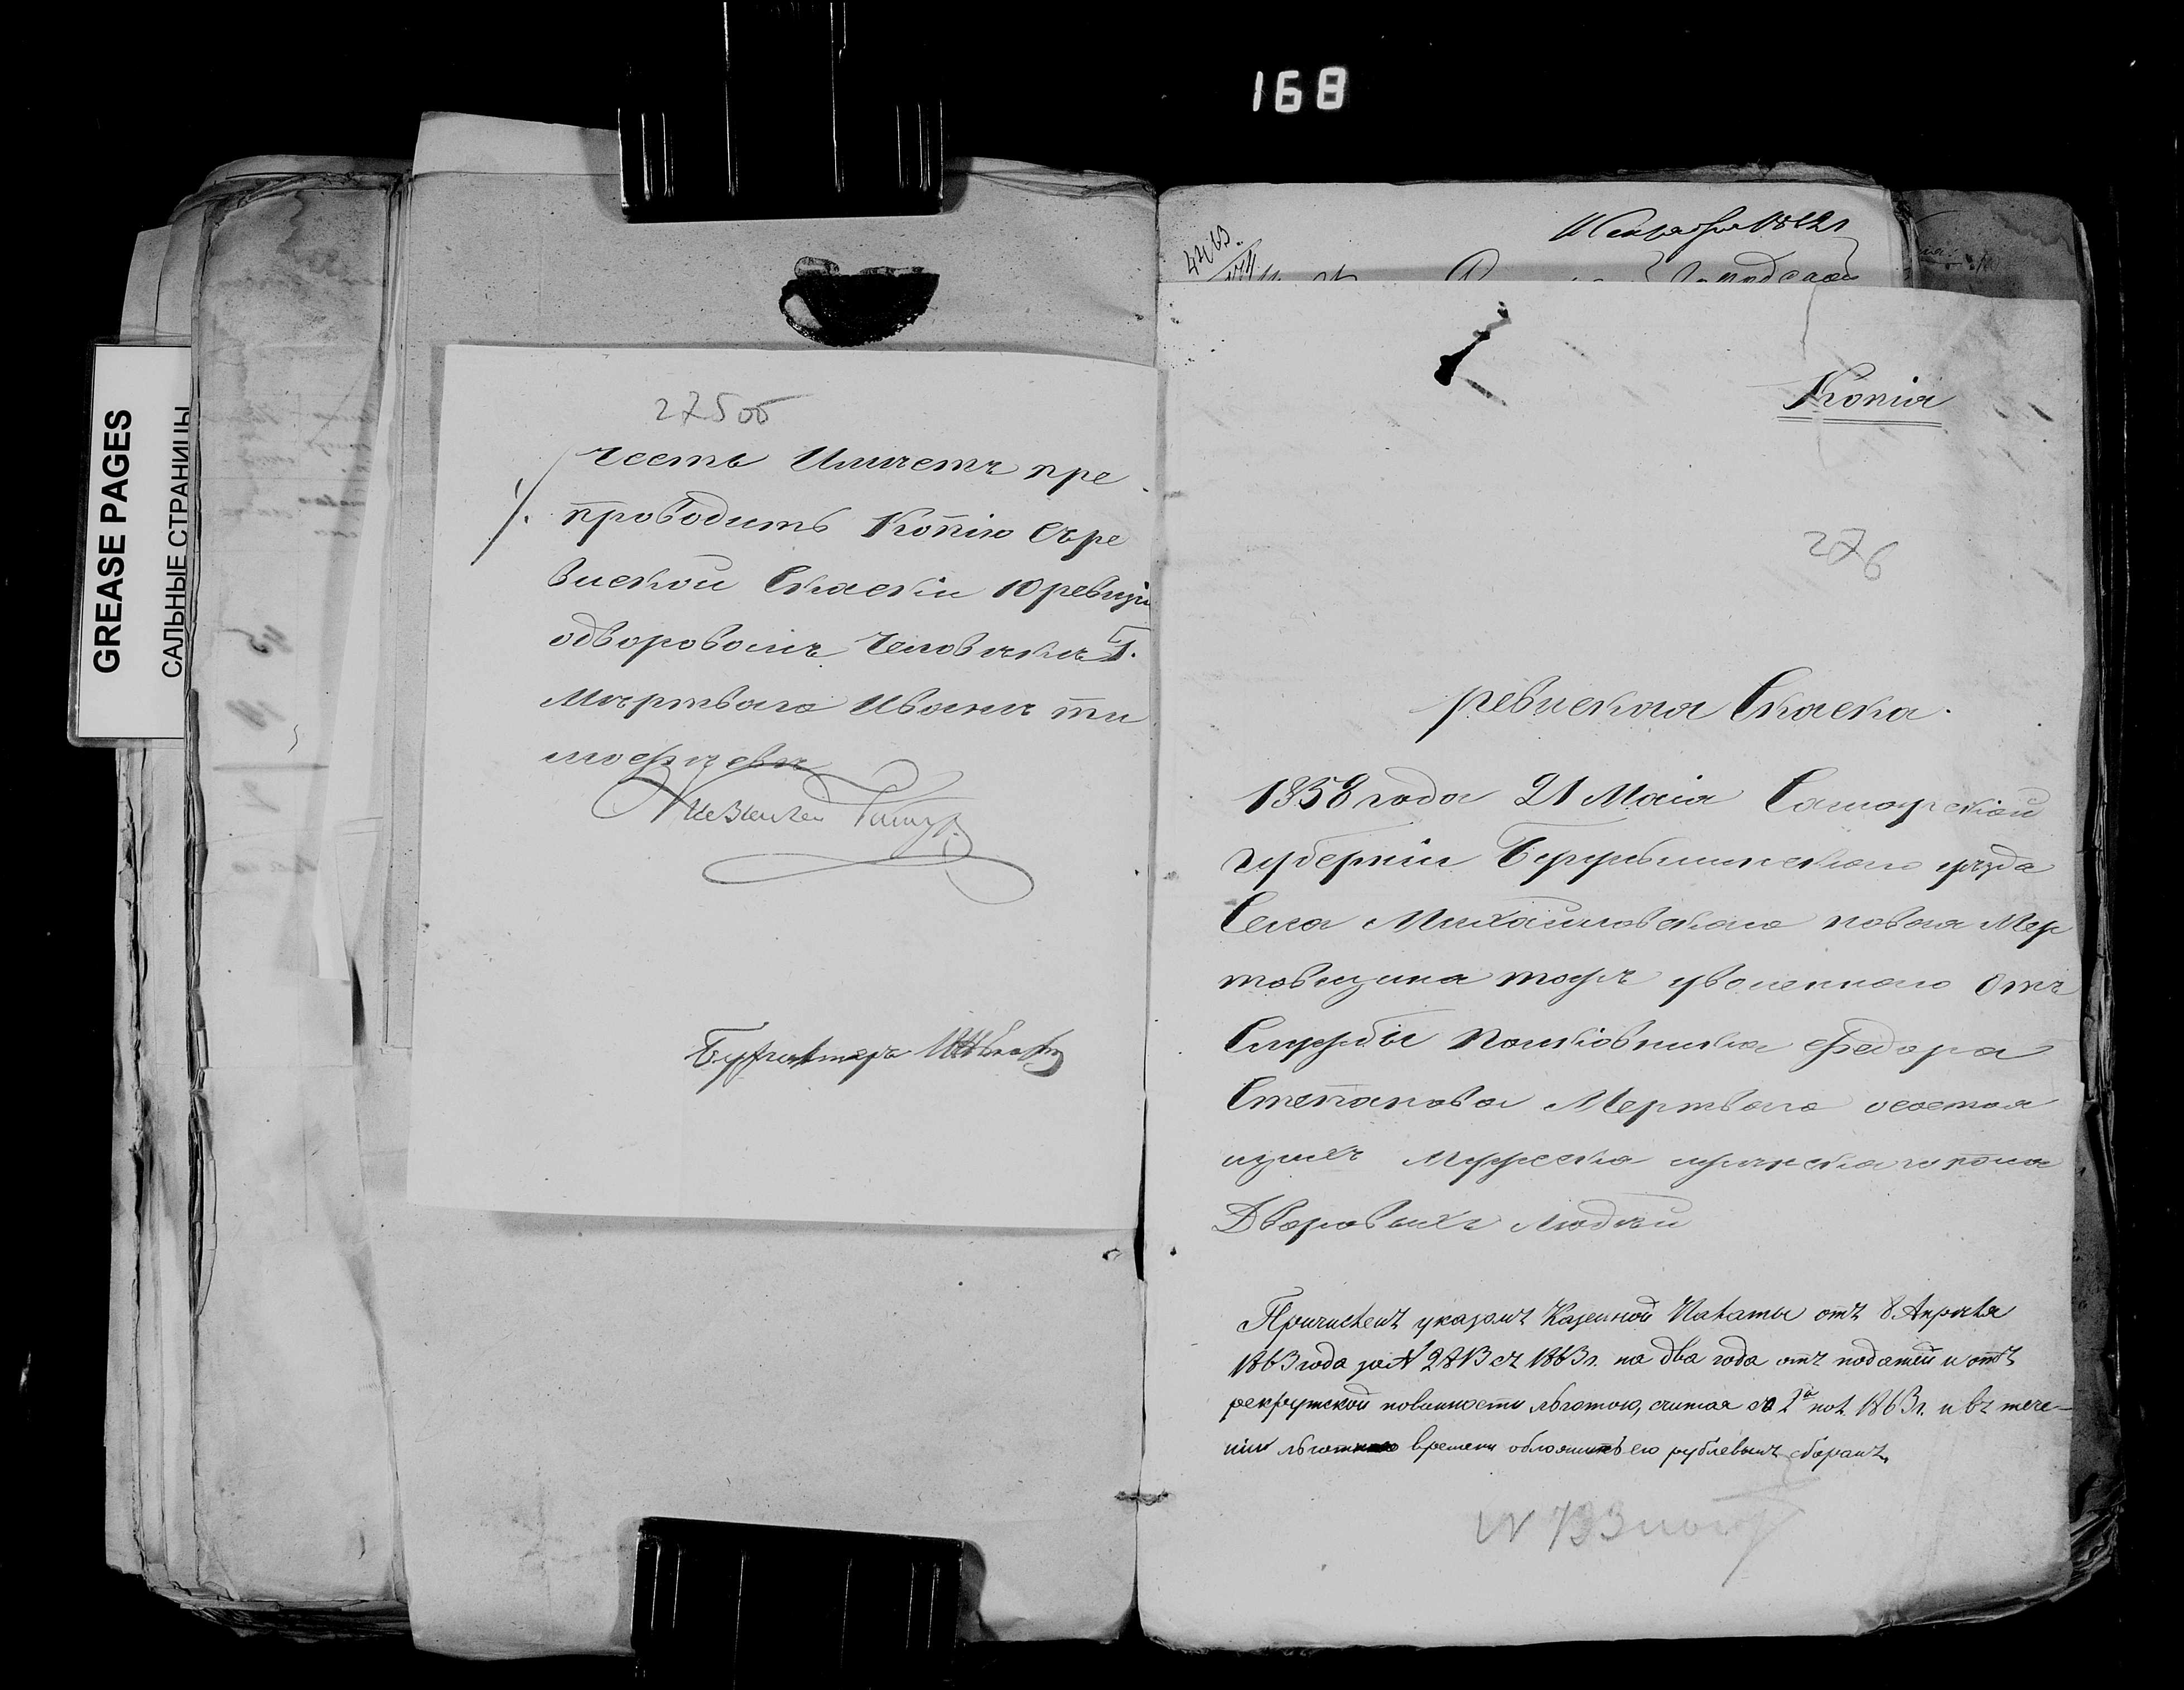 168
GREASE PAGES
САЛЬНЫЕ СТРАНИЦЫ
275об
честь Имѣетъ пре
проводить Копію Съре
виской Скаски 10 ревизи
одворовомъ Человѣкѣ Г.
Мѣртваго Иванѣ ти
мофѣевѣ
Бухгалтеръ
Копія
276
ревиская Скаска.
1858 года 21 Маія Самарскіой
губерніи Бугульминскаго уѣзда
Села Михайловскаго новая Мер
товщина тожъ уволеннаго Отъ
Службы Полковника Федора
Степанова Мертваго осостоя
щихъ Мужеска иженска гпола
Дворовыхъ Людѣй
Причисленъ указомъ Казенной Палаты отъ 8 Апрѣля
1863 года за № 2813 съ 1863 г. на два года отъ податей и отъ
рекрутской повинности льготою, считая съ 1й пол. 1863 г. и въ тече-
ніи льготнаго времени обложить его рублевымъ сборомъ,